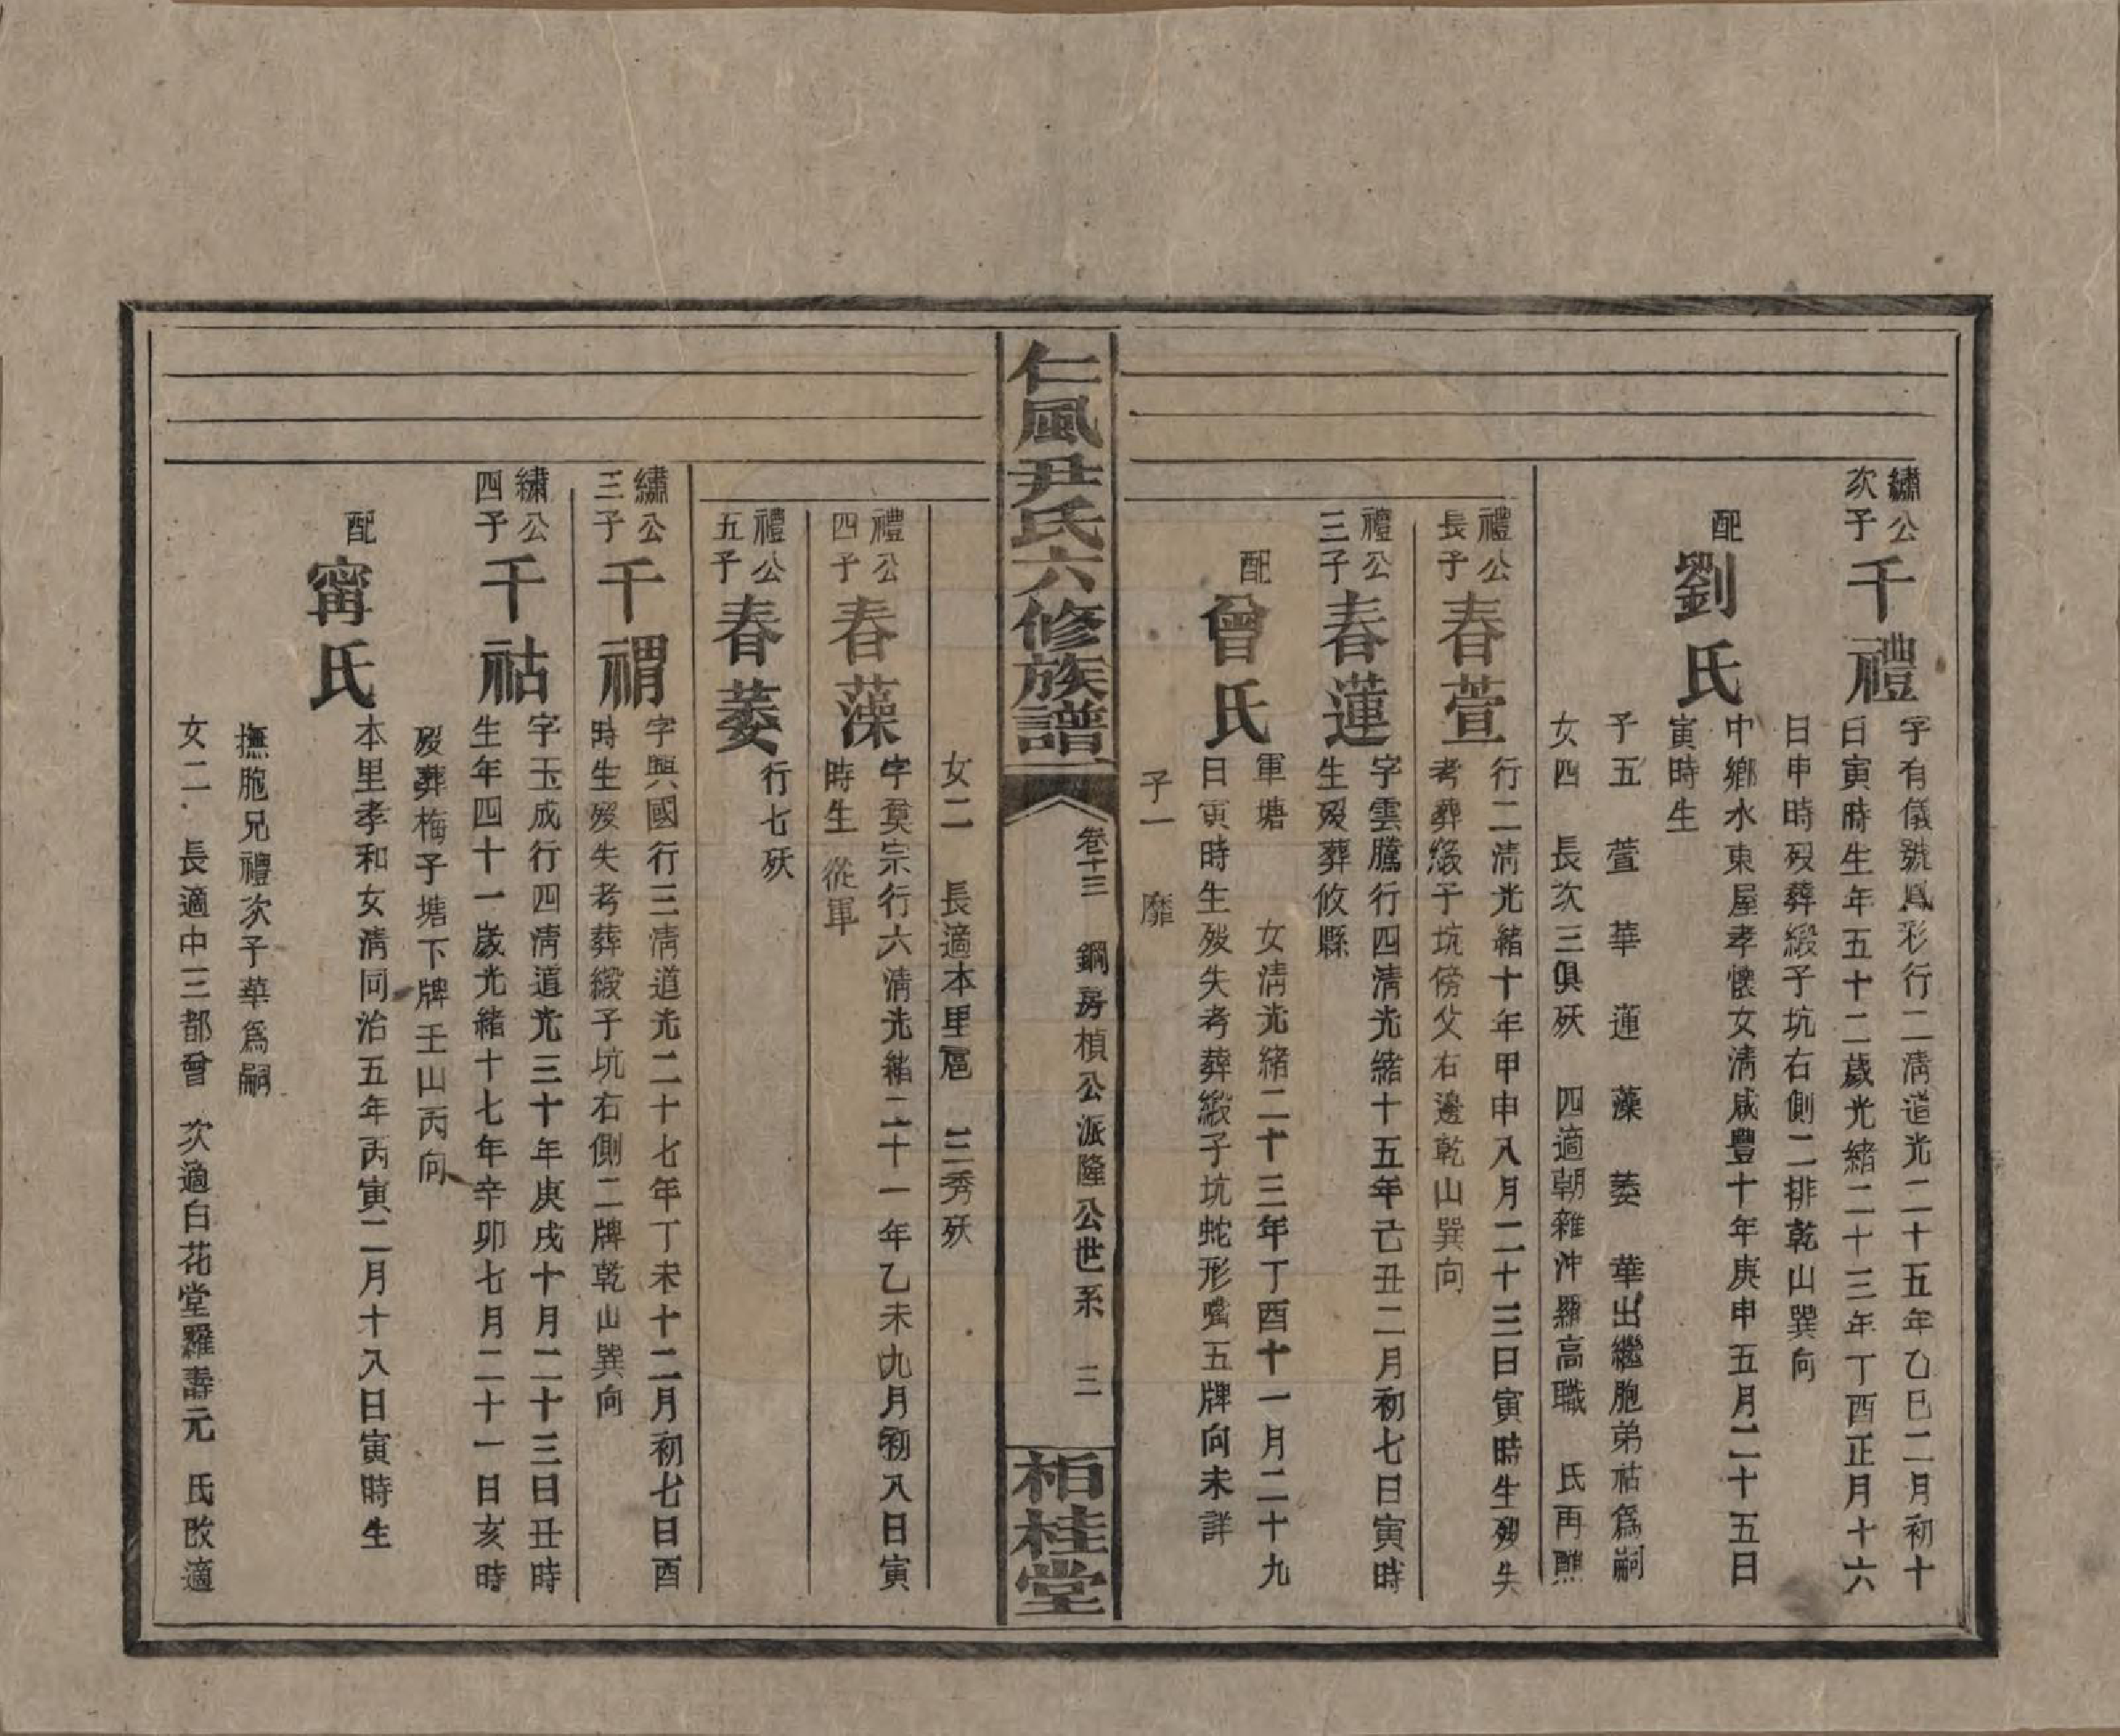 繡公
次子
千禮
字有儀號鳳彩行二清道光二十五年乙巳二月初十
日寅時生年五十二歲光緒二十三年丁酉正月十六
日申時歿葬緞子坑右側二排乾山巽向
配
劉氏
中鄉水東屋孝懷女清咸豐十年庚申五月二十五日
寅時生
子五 萱 華 蓮 藻 蒌 華出繼胞弟祜為嗣
女四 長次三俱殀 四適朝雜沖羅高職 氏再醮
禮公
長子
春萱
行二清光緒十年甲申八月二十三日寅時生歿失
考葬緞子坑傍父右邊乾山巽向
禮公
三子
春蓮
字雲騰行四清光緒十五年己丑二月初七日寅時
生歿葬攸縣
配
曾氏
軍塘 女清光緒二十三年丁酉十一月二十九
日寅時生歿失考葬緞子坑蛇形嘴五牌向未詳
子一 靡
仁風尹氏六修族譜
卷十三 鋼房楨公派隆公世系 三
栢桂堂
女二 長適本里扈 三秀殀
禮公
四子
春藻
字奠宗行六清光緒二十一年乙未九月初八日寅
時生 從軍
禮公
五子
春蒌
行七殀
繡公
三子
千禩
字興國行三清道光二十七年丁未十二月初七日酉
時生歿失考葬緞子坑右側二牌乾山巽向
繡公
四子
千祜
字玉成行四清道光三十年庚戌十月二十三日丑時
生年四十一歲光緒十七年辛卯七月二十一日亥時
歿葬梅子塘下牌壬山丙向
配
甯氏
本里孝和女清同治五年丙寅二月十八日寅時生
撫胞兄禮次子華為嗣
女二 長適中三都曾 次適白花堂羅壽元 氏改適